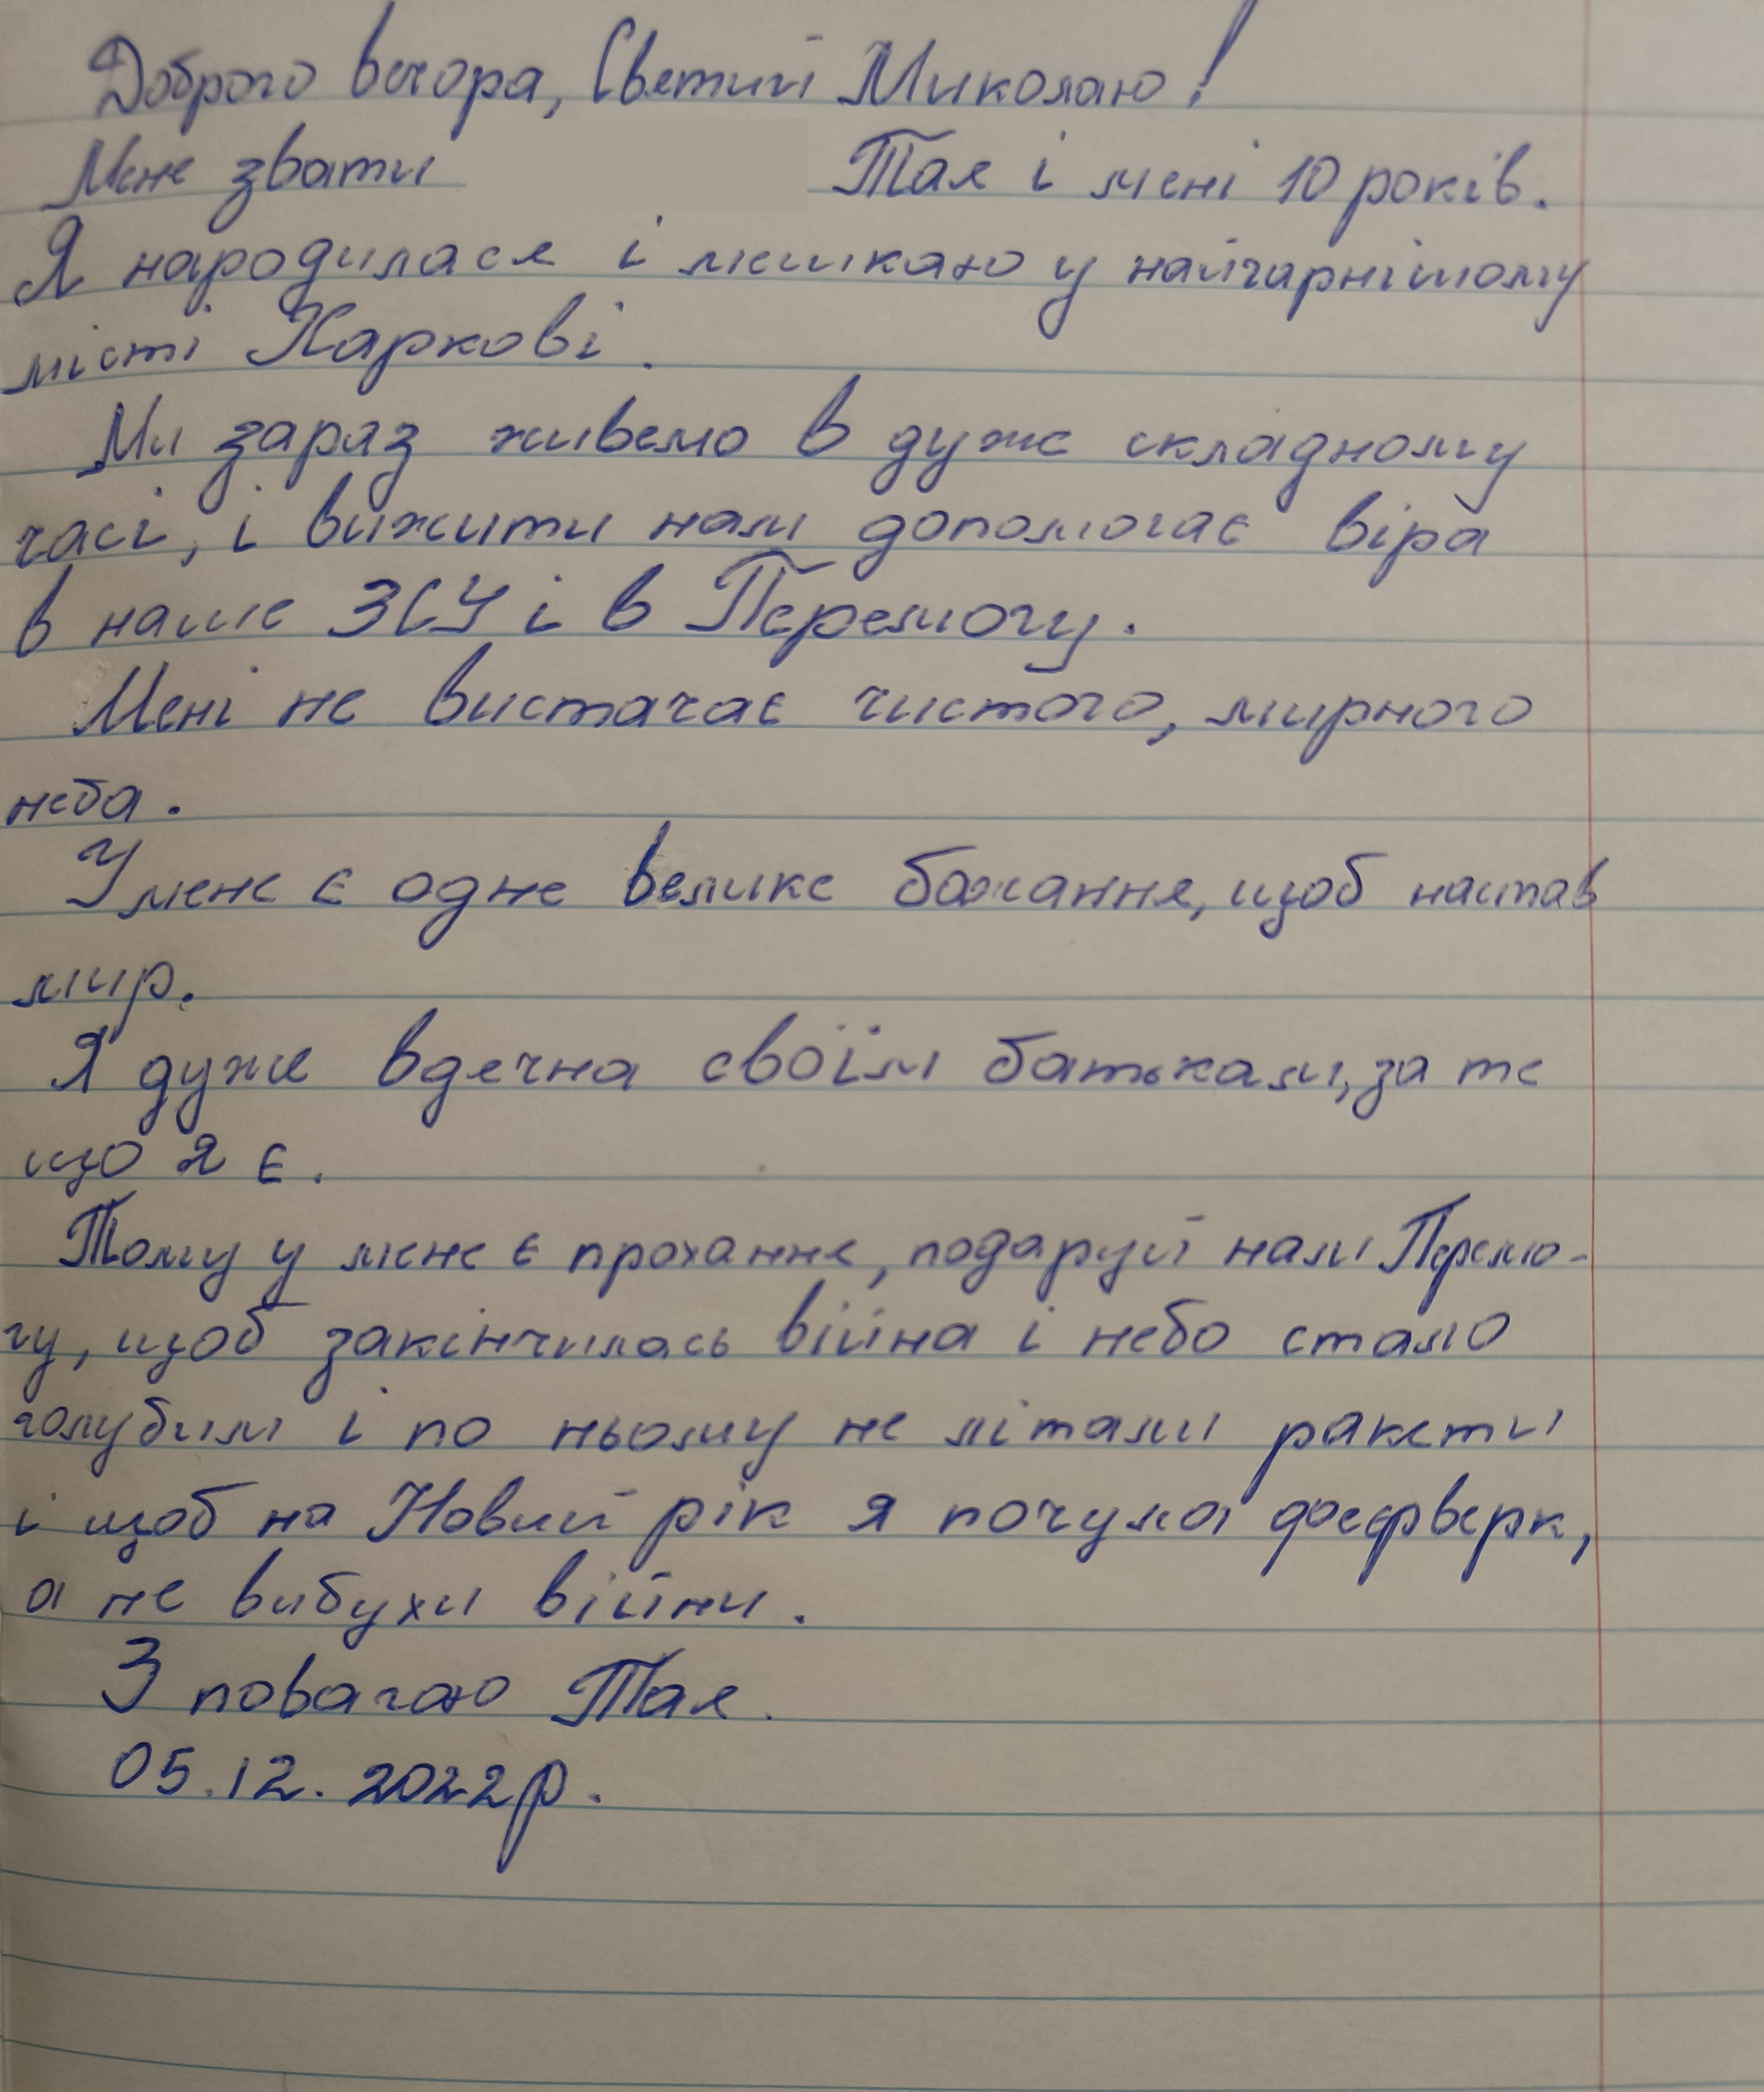 Доброго вечора, Святий Миколаю!
Мене звати Тая і мені 10 років.
Я народилася і мешкаю у найгарнішому
місті Харкові.
Ми зараз живемо в дуже складному
часі, і вижити нам допомагає віра
в наше ЗСУ і в Перемогу.
Мені не вистачає чистого, мирного
неба.
У мене є одне велике бажання, щоб настав
мир.
Я дуже вдячна своїм батькам, за те
що я є.
Тому у мене є прохання, подаруй нам Перемо-
гу, щоб закінчилась війна і небо стало
голубим і по ньому не літали ракети
і щоб на Новий рік я почула феєрверк,
а не вибухи війни.
З повагою Тая.
05.12.2022р.